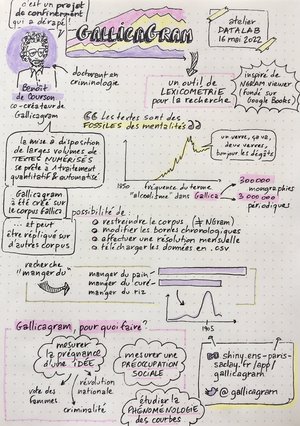 c'est un projet
de confinement
qui a dérapé
GALLICAGRAM
atelier
DATALAB
16 mai 2022
Benoît
de Courson
co-créateur de
Gallicagram
doctorant en
criminologie
un outil de
LEXICOMÉTRIE
pour la recherche
inspiré de
NGRAM VIEWER
(fondé sur
Google Books)
les textes sont des
FOSSILES des mentalités
la mise à disposition
de larges volumes de
TEXTES NUMÉRISÉS
se prête à 1 traitement
quantitatif & automatisé
un verre, ça va,
deux verres,
bonjour les dégâts
1850
1950
fréquence du terme
"alcoolisme" dans Gallica
300000
monographies
3000000
périodiques
Gallicagram
a été créé sur
le corpus Gallica
... et peut
être répliqué sur
d'autres corpus
possibilité de :
restreindre le corpus (≠ NGram)
modifier les bornes chronologiques
effectuer une résolution mensuelle
télécharger les données en .csv
recherche
"manger du"
manger du pain
manger du curé
manger du riz
1905
Gallicagram, pour quoi faire ?
mesurer
la prégnance
d'une IDÉE
vote des
femmes
révolution
nationale
criminalité
mesurer une
PRÉOCCUPATION
SOCIALE
étudier la
PHÉNOMÉNOLOGIE
des courbes
shiny.ens-paris-
saclay.fr/app/
gallicagram
@gallicagram